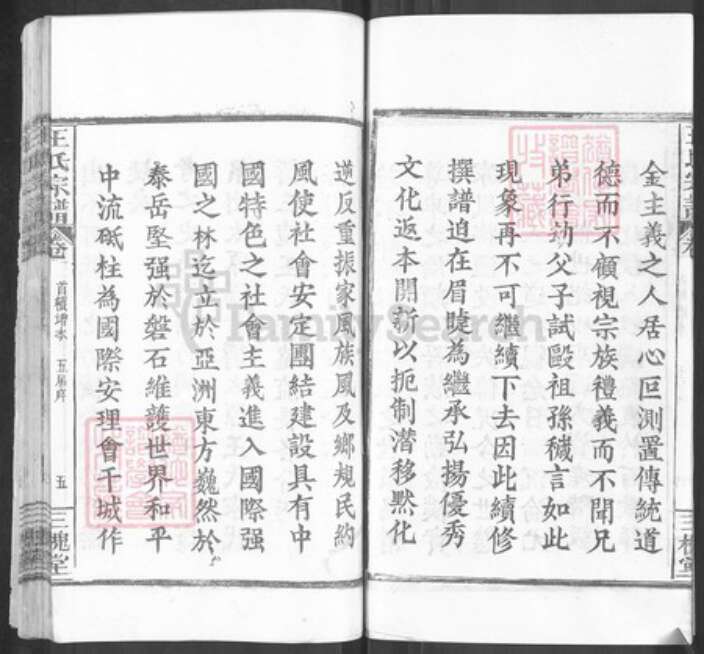 金主義之人居心叵測置傳統道
德而不顧視宗族禮義而不聞兄
弟行劝父子試毆祖孫穢言如此
現象再不可繼續下去因此續修
撰譜迫在眉睫為繼承弘揚優秀
文化返本開新以扼制潜移黙化
逆反重振家風族風及鄉規民約
風使社會安定團結建設具有中
國特色之社會主義進入國際强
國之林迄立於亞洲東方巍然於
泰岳堅强於磐石維護世界和平
中流砥柱為國際安理會干城作
王氏宗譜
卷
首續增本
五届序
五
三槐堂
王氏宗譜
卷
三槐堂
FamilySearch